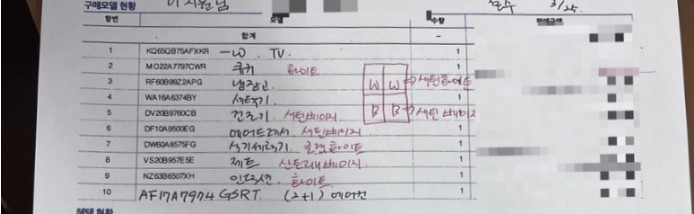 구매모델 현황
이 지원님
3/25.
항번 모델 수량 판매금액
합계 -
1 KQ65QB75AFXKR -W. TV. 1
2 MO22A7797CWR 큐커 화이트 1
3 RF60B99Z2APG 냉장고 W W → 새틴화이트 1
4 WA16A6374BY 세탁기 1
5 DV20B9760CB 건조기 새틴베이지 B B → 새틴베이지 1
6 DF10A9500EG 에어드레서 새틴베이지 1
7 DW60A8575FG 식기세척기 글램화이트 1
8 VS20B957E5E 제트 산토리니베이지 1
9 NZ63B6507XH 인덕션. 화이트 1
10 AF17A7974GSRT (2+1) 에어컨 1
혜택 현황